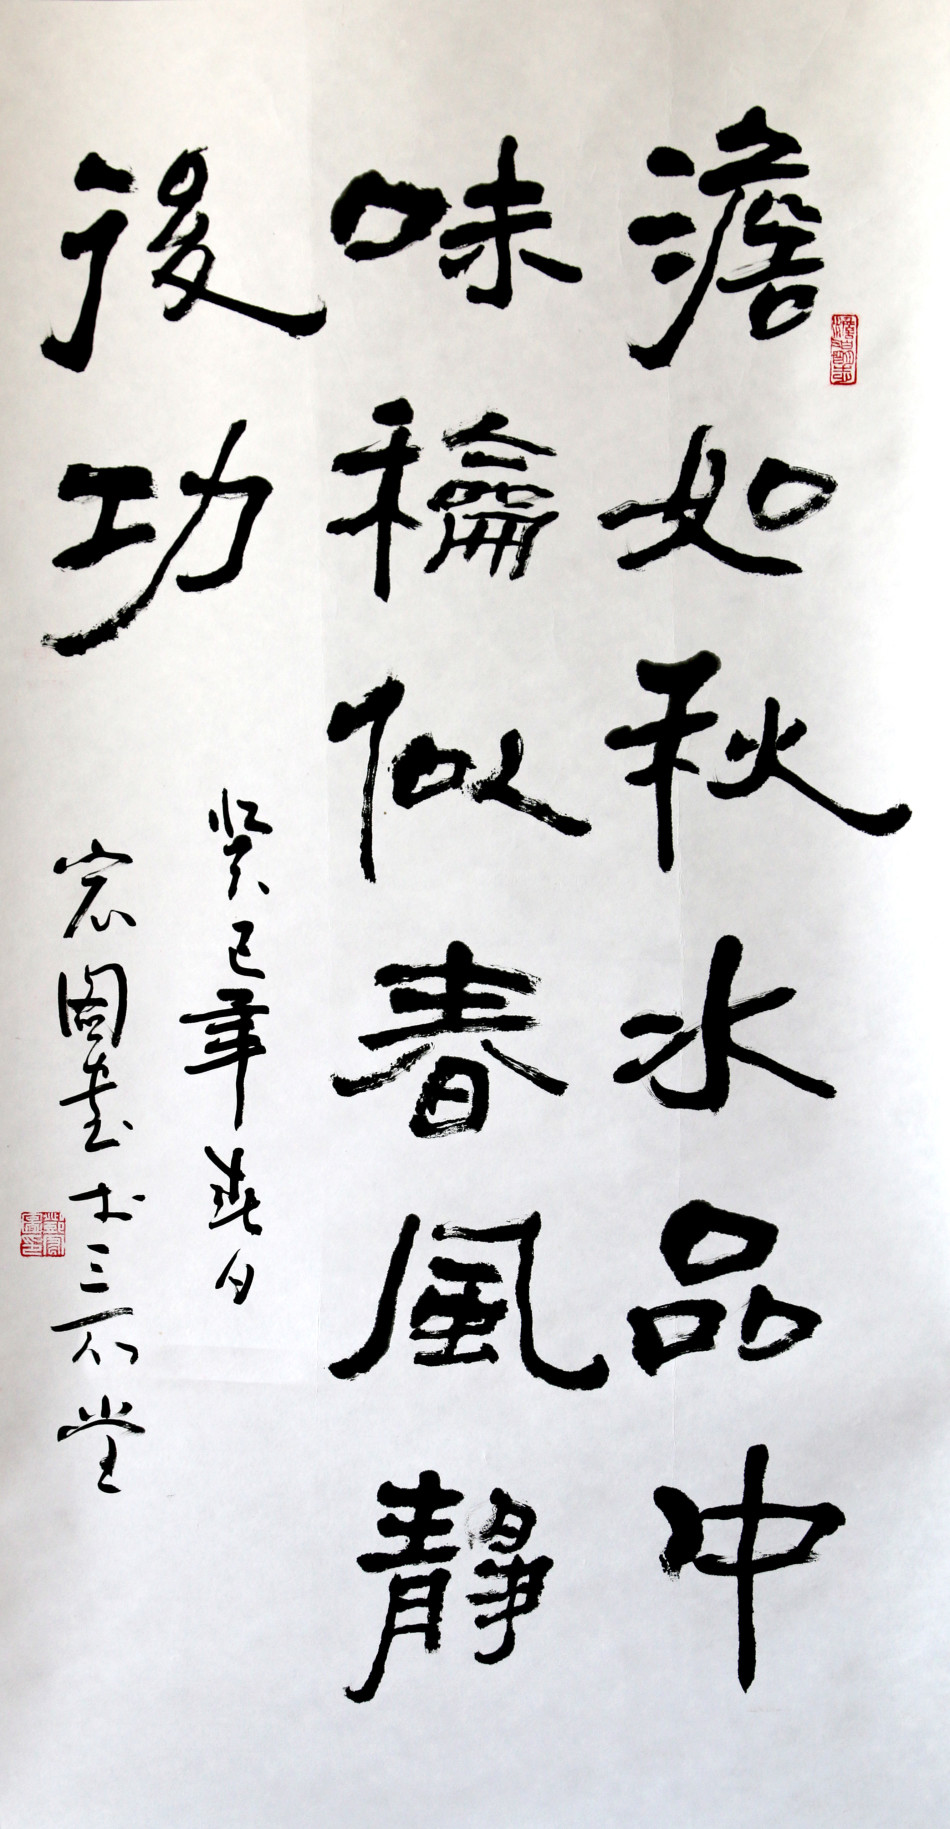 澹如秋水品中
味龢似春風靜
後功
癸巳年春月
宏書於三石堂